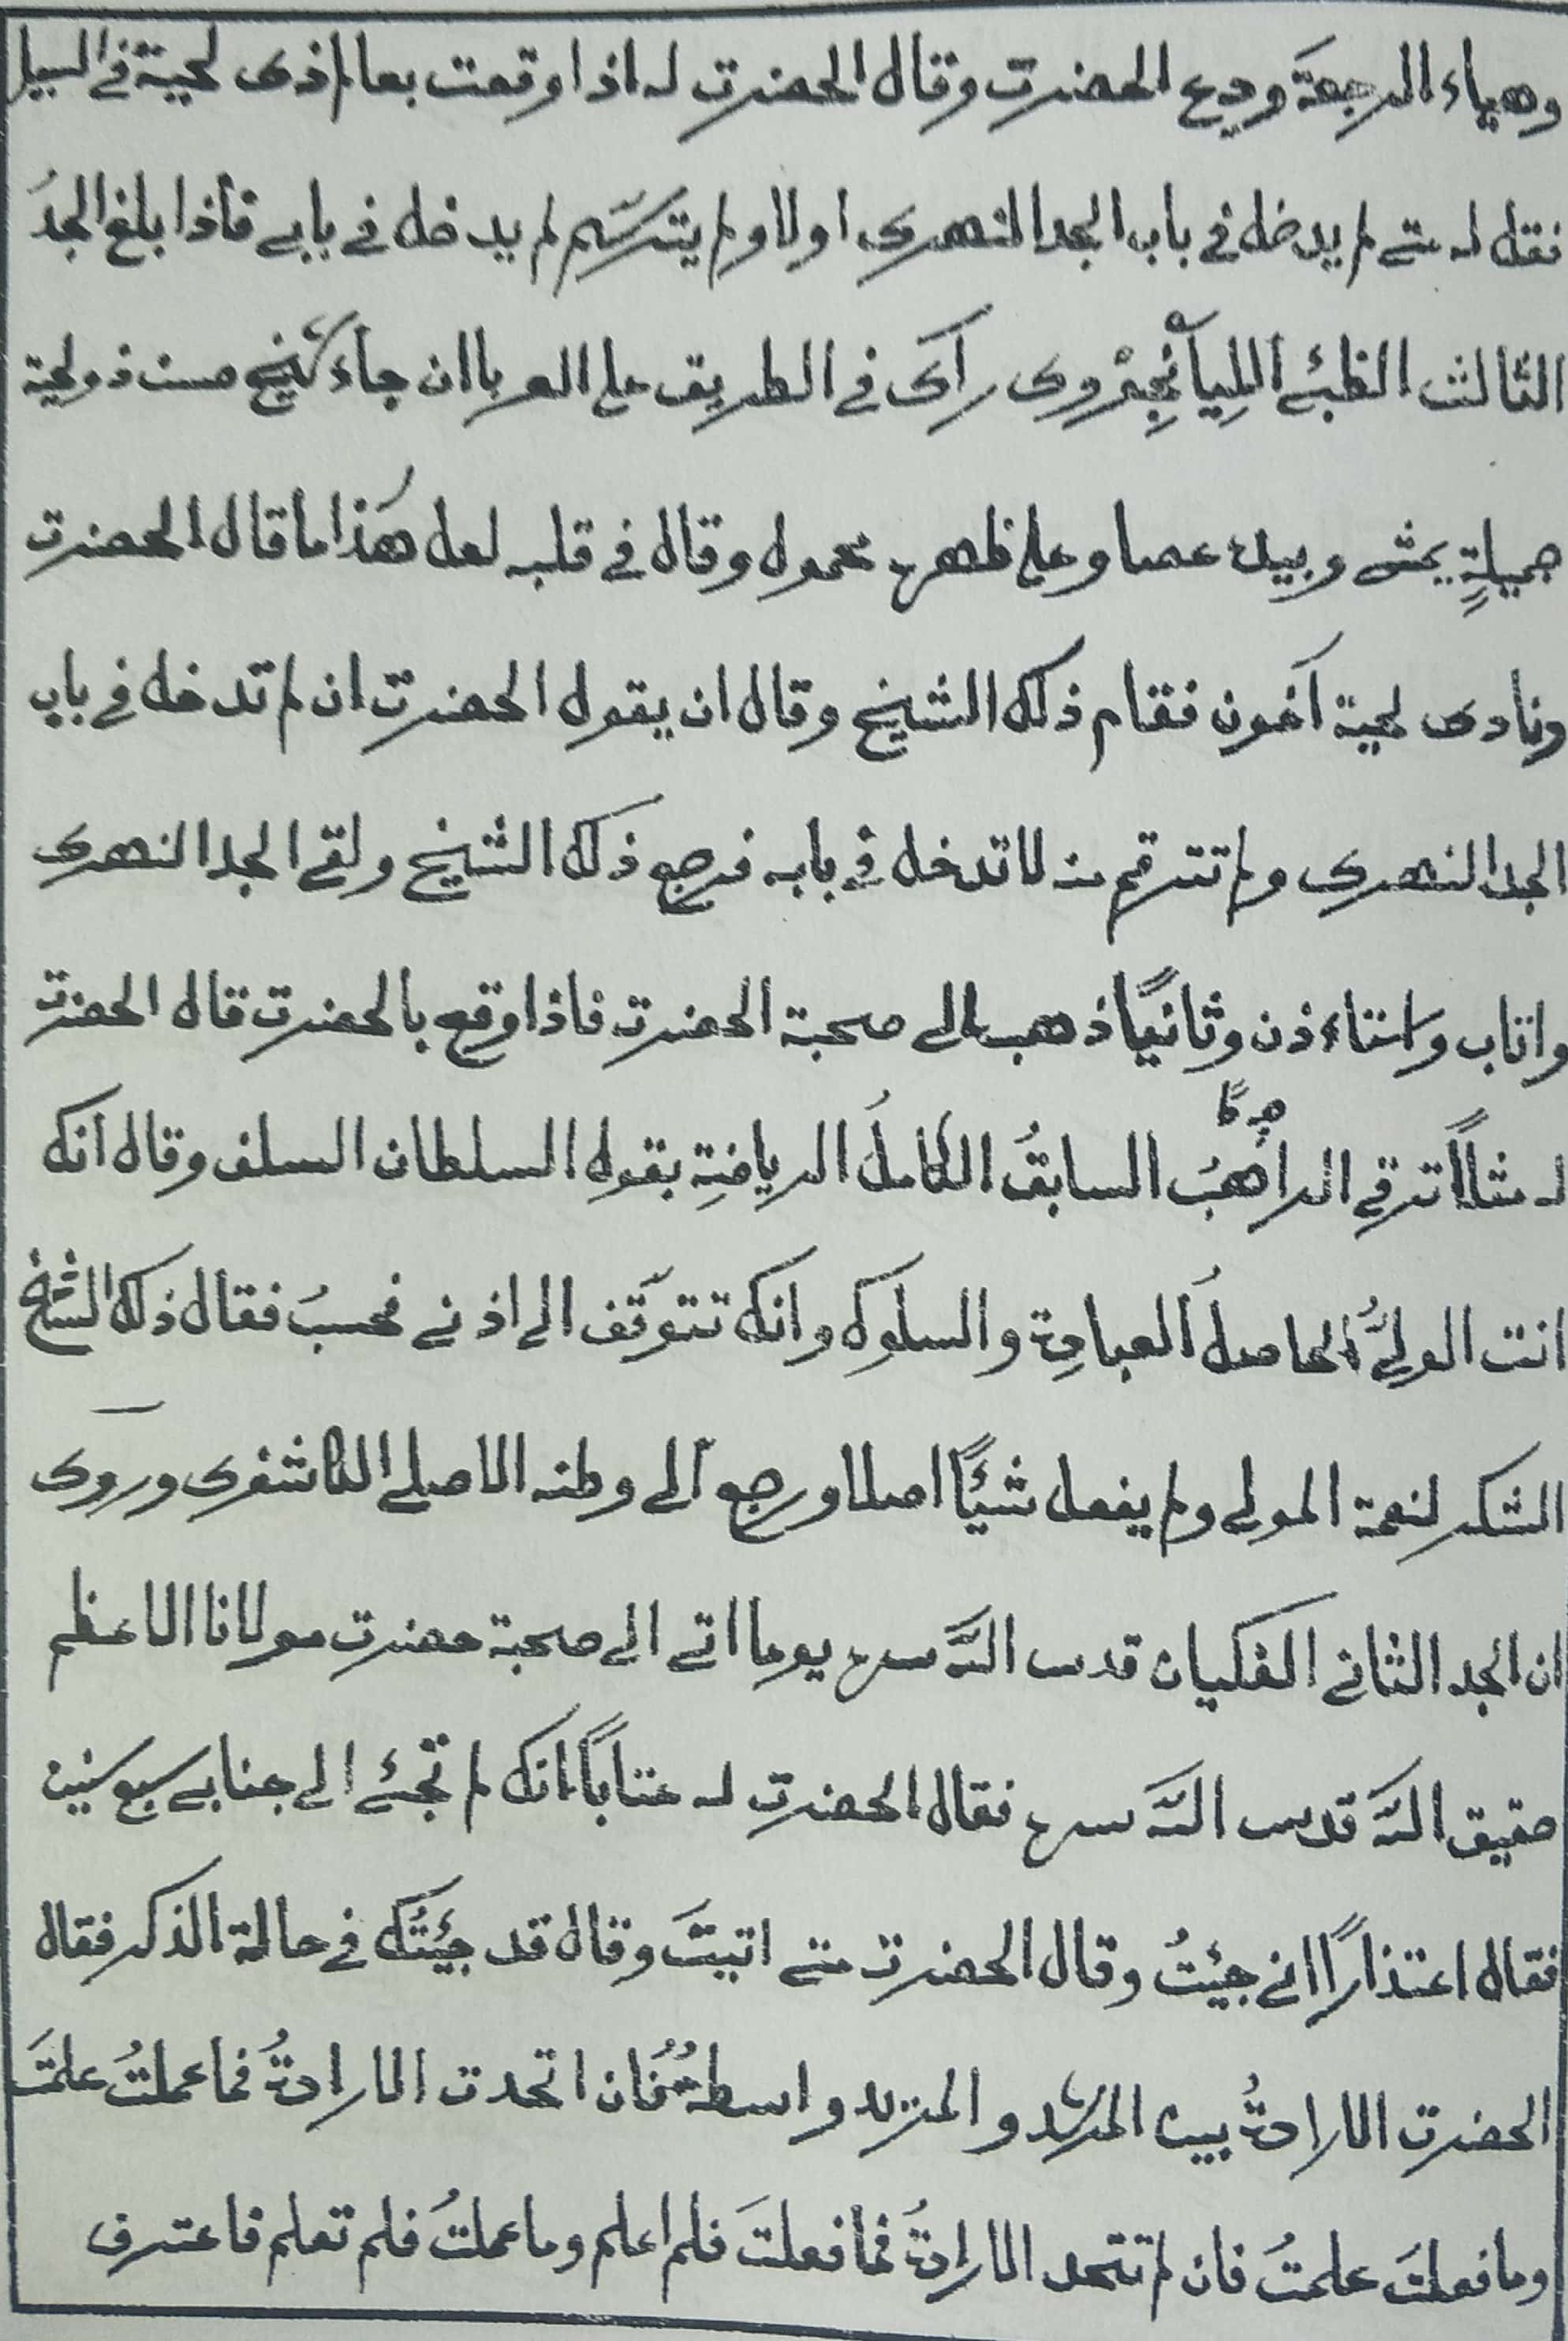 وهياء الرجعة ودع الحضرت وقال الحضرت له اذا وقعت بعالم ذى لحية في السبيل
فقل له متى لم يدخل في باب الجد النهرى اولا ولم يترسّم لم يدخل في بابي فأذا بلغ الجدَ
الثالث في الطريق على العربا ان جاء شيخ مسن ذو لحية
جميلةٍ يمشى وبيده عصا وعلى ظهره محمول وقال في قلبه لعل هٰذا ما قال الحضرت
ونادى لحية آخون فقام ذلك الشيخ وقال ان يقول الحضرت ان لم تدخل في باب
الجد النهرى ولم تترقم منه لا تدخل في بابه فرجع ذلك الشيخ ولقى الجد النهرى
واتاب واستاءذن وثانيًا ذهب الى صحبة الحضرت فاذا وقع بالحضرت قال الحضرت
له مثالًا ترقى الراهبُ السابقُ الكاملُ الرياضةِ بقول السلطان السلف وقال انك
انت الوليُّ الحاصلُ العبادةِ والسلوك وانك تتوقّف الى اذنى فحسبُ فقال ذلك الشيخ
الشكر لنعمة المولى ولم يفعل شيئًا اصلا ورجع الى وطنه الاصلى الكاشغرى وروى
ان الجد الثانى قدس اللّه سره يوما اتى الى صحبة حضرت مولانا الاعظم
حقيق اللّه قدس اللّه سره فقال الحضرت له عتابًا انك لم تجئ الى جنابى سبع سنين
فقال اعتذارًا انى جئتُ وقال الحضرت متى اتيتَ وقال قد جيئتُك في حالة الذكر فقال
الحضرت الارادةُ بين المرشد والمريد واسطةٌ فان اتحدت الارادةُ فما عملتُ علمتَ
وما فعلتَ علمتُ فان لم تتحد الارادةُ فما فعلتَ فلم اعلم وما عملتُ فلم تعلم فاعترف